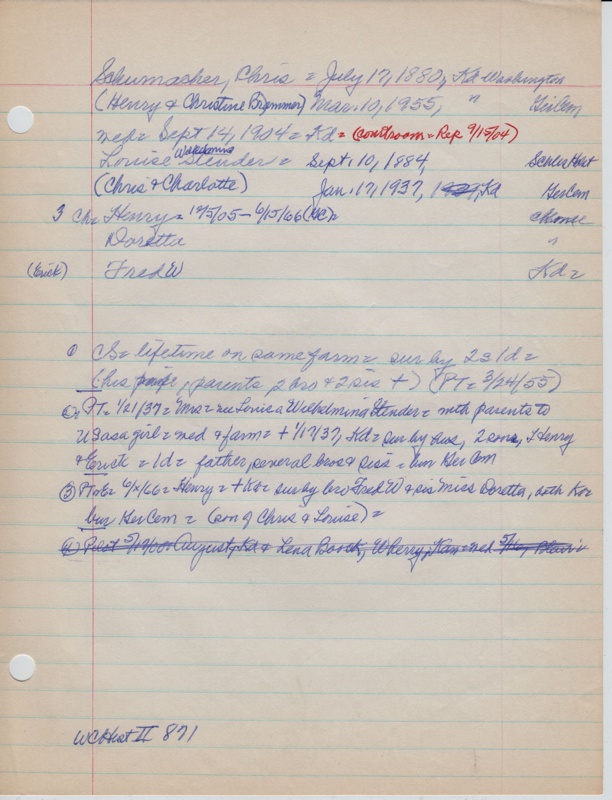 Schumacher, Chris = July 17, 1880, Kd Washington
(Henry & Christine Brammer) Mar. 10, 1955, " GerCem
wed = Sept 14, 1904 = Kd = (courtroom = Rep 9/15/04)
Louise Stender = Sept. 10, 1884, Schles Holst
(Chris & Charlotte) Jan. 17, 1937, Kd GerCem
3 Ch = Henry = 12/5/05 - 6/15/66 (GC) =
Doretta "
(Erick) Fred W Kd =
① CS = lifetime on same farm = sur by 2s 1d =
(his wife, parents 2 bro & 2 sis +) (PT = 3/24/55)
② PT = 1/21/37 = Mrs = nee Louisa Wilhelmina Stender = with parents to
US as a girl = wed & farm = + 1/17/37, Kd = sur by hus, 2 sons, Henry
& Erick = 1d = father, several bros & siss = bur Ger Cem
③ PT = 6/ /66 = Henry = + Kd = sur by bro Fred W & sis Miss Doretta, both Kd =
bur Ger Cem = (son of Chris & Louise) =
August, Kd & Lena
WCHist II 871